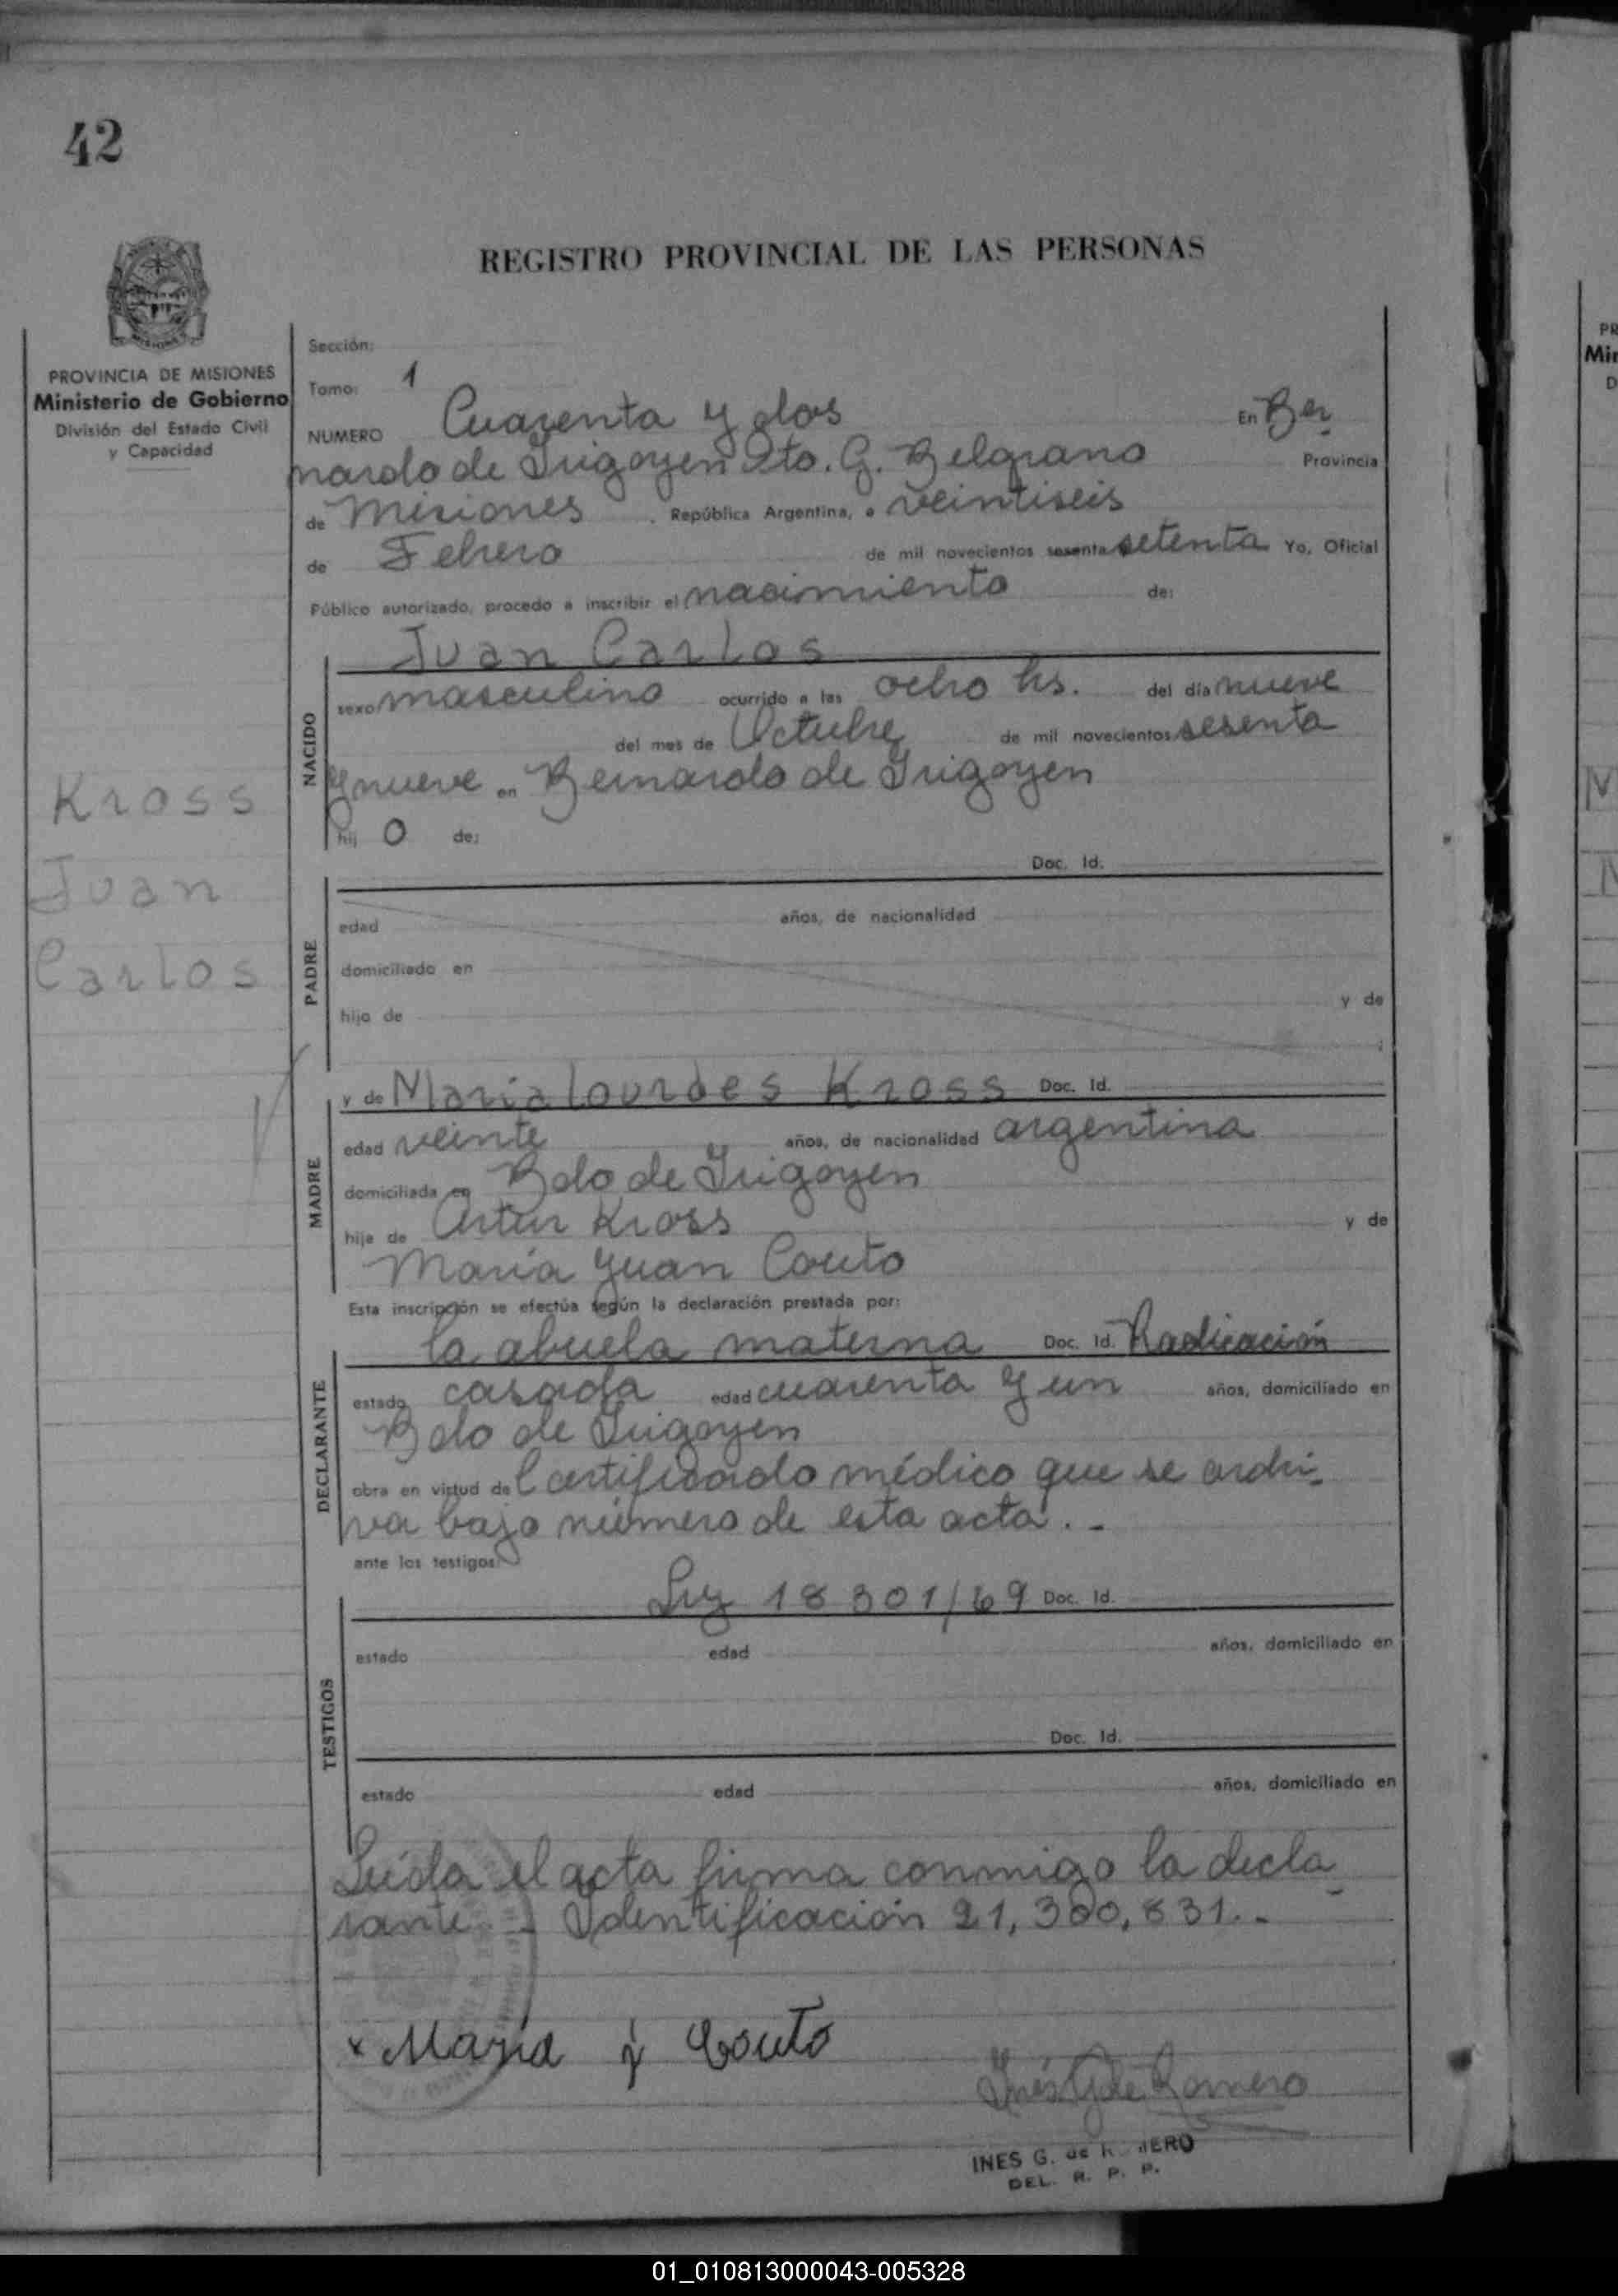 42
REGISTRO PROVINCIAL DE LAS PERSONAS
PROVINCIA DE MISIONES
Ministerio de Gobierno
División del Estado Civil
y Capacidad
Kross
Juan
Carlos
Sección:
Tomo: 1
NUMERO Cuarenta y dos En Ber
nardo de Irigoyen Dto. G. Belgrano Provincia
de Misiones , República Argentina, a veintiseis
de Febrero de mil novecientos sesenta setenta Yo, Oficial
Público autorizado, procedo a inscribir el nacimiento de:
Juan Carlos
NACIDO
sexo masculino ocurrido a las ocho hs. del día nueve
del mes de Octubre de mil novecientos sesenta
y nueve en Bernardo de Irigoyen
hij o de:
Doc. Id.
PADRE
edad años, de nacionalidad
domiciliado en
hijo de y de
;
MADRE
y de Maria Lourdes Kross Doc. Id.
edad veinte años, de nacionalidad argentina
domiciliada en Bdo de Irigoyen
hija de Artur Kross y de
María Yuan Couto
Esta inscripción se efectúa según la declaración prestada por:
DECLARANTE
la abuela materna Doc. Id. Radicación
estado casada edad cuarenta y un años, domiciliado en
Bdo de Irigoyen
obra en virtud de Certificado médico que se archi-
va bajo número de esta acta. -
ante los testigos:
TESTIGOS
Ley 18 301/69 Doc. Id.
estado edad años, domiciliado en
Doc. Id.
estado edad años, domiciliado en
Leída el acta firma conmigo la decla-
rante. - Identificación 21,300,831. -
x María y Couto
Inés G de Romero
INES G. de R MERO
DEL. R. P. P.
PR
Min
D
01_010813000043-005328